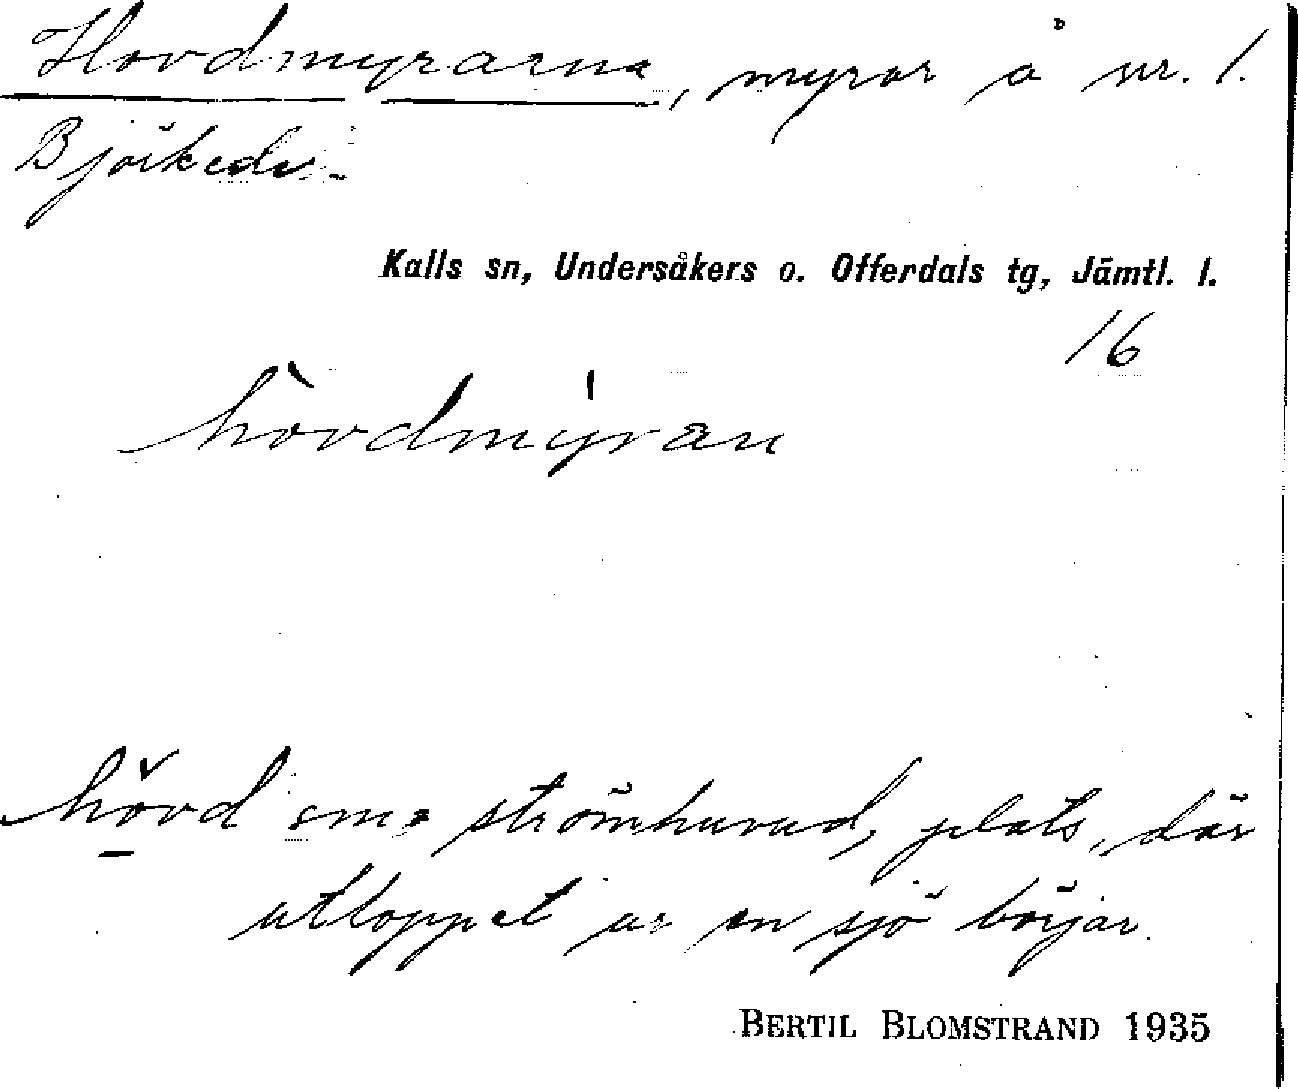 Hovdmyrarna, myrar å nr. 1.
Björkede.
Kalls sn, Undersåkers o. Offerdals tg, Jämtl. l.
16
hòvdmýran
hovd sm. strömhuvud, plats, där
utloppet ur en sjö börjar.
BERTIL BLOMSTRAND 1935